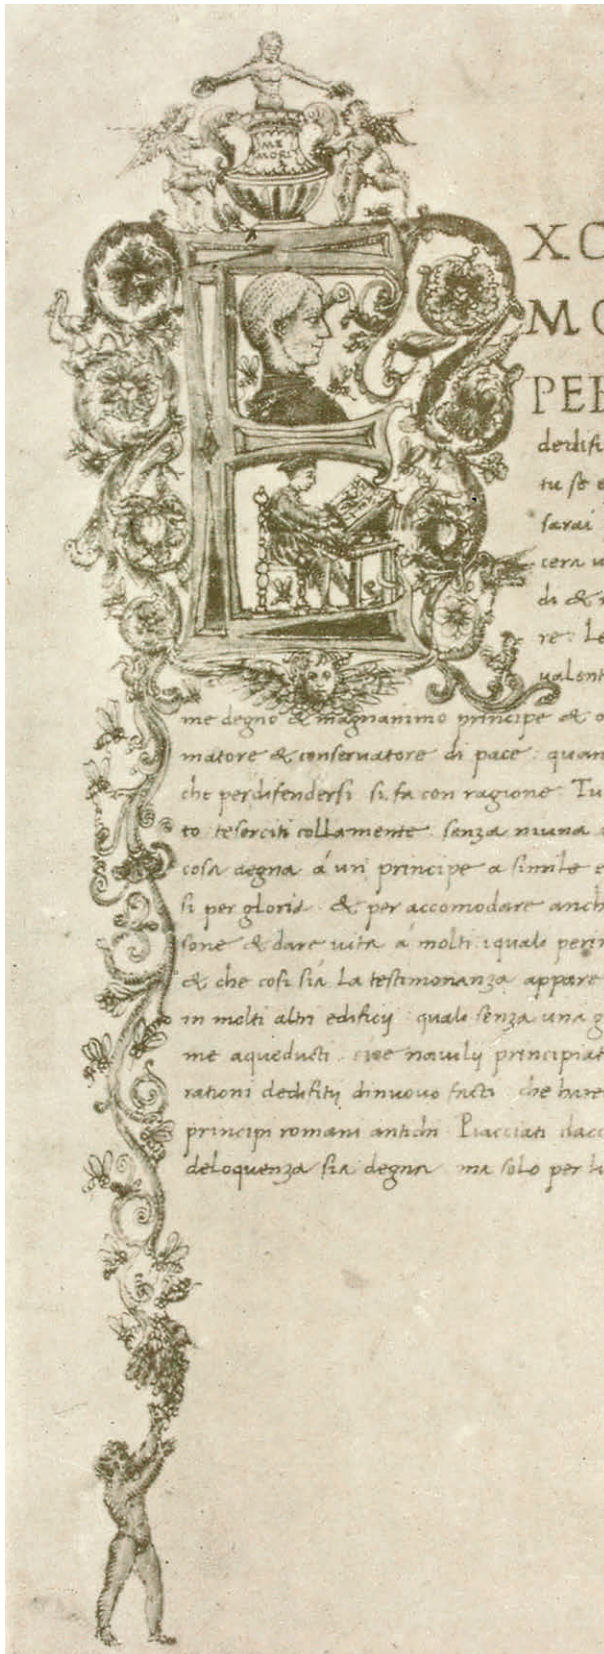 ME
MORI
X.C
M
PER
dedifi
tu se e
sarai
cera u
di &
re. Le
valent
me degno & magnanimo principe & o
matore & conservatore di pace. quan
che perdifendersi si fa con ragione. Tu
to teserciti collamente. senza niuna
cosa degna á un principe a simile e
si per gloria. & per accomodare anch
sone & dare vita á molti iquali
& che cosi sia La testimonanza appare
in molti altri edificij quali senza una g
me aqueducti. cioe navilij principiat
rationi dedifitij dinuovo facti. che hare
principi romani antichi Piacciati dacc
deloquenza sia degna ma solo per